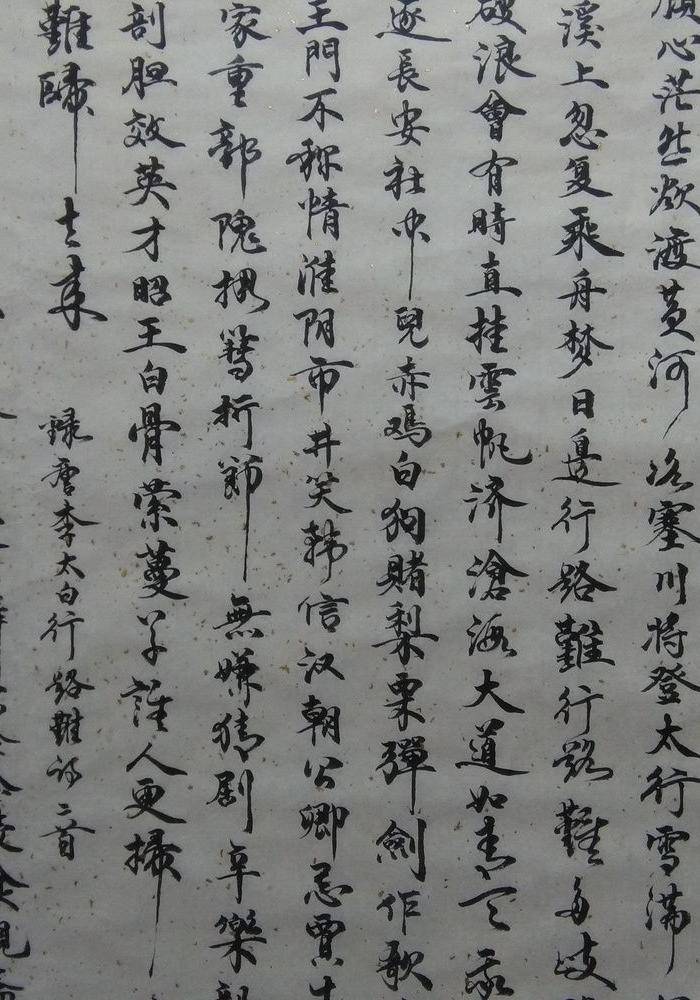 顧心茫然欲渡黄河冰塞川将登太行雪满
溪上忽复乘舟梦日邊行路難行路難多歧
破浪會有時直挂雲帆济滄海大道如青天我
逐長安社中兒赤鸡白狗賭梨栗彈劍作歌
王門不称情淮阴市井笑韩信汉朝公卿忌賈
家重郭隗拥篲折節無嫌猜劇辛樂
剖胆效英才昭王白骨萦蔓草誰人更掃
難歸去来
錄唐李太白行路難詩二首